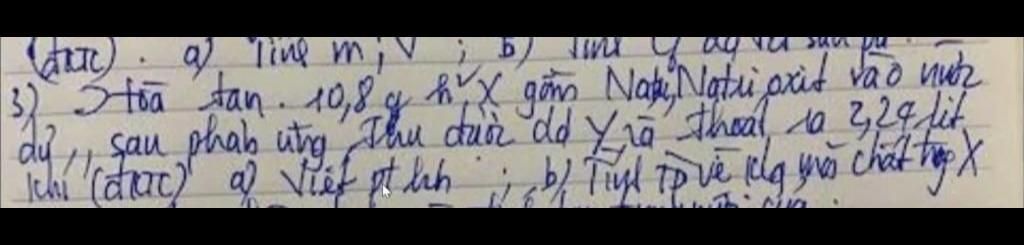 (đktc). a) Tính m, V ; b) Tính
3) Hoà tan 10,8 g h² X gồm Natri, Natri oxit vào nước
dư, sau phản ứng thu được dd Y và thoát ra 2,24 lit
khí (đktc) a) Viết pt hh ; b) Tính TP về klg mỗi chất trong X